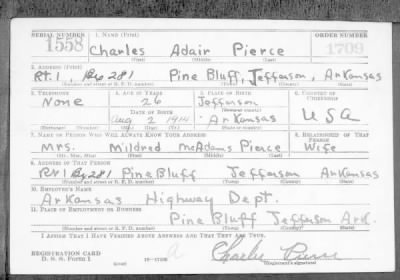 SERIAL NUMBER 1. NAME (Print) ORDER NUMBER
1558 Charles Adair Pierce 1709
(First) (Middle) (Last)
2. ADDRESS (Print)
Rt. 1, Box 281 Pine Bluff, Jefferson, Arkansas
(Number and street or R. F. D. number) (Town) (County) (State)
3. TELEPHONE 4. AGE IN YEARS 5. PLACE OF BIRTH 6. COUNTRY OF CITIZENSHIP
None 26 Jefferson
DATE OF BIRTH (Town or county)
Aug 2 1914 Arkansas USA
(Mo.) (Day) (Yr.) (State or country)
7. NAME OF PERSON WHO WILL ALWAYS KNOW YOUR ADDRESS 8. RELATIONSHIP OF THAT PERSON
Mrs. Mildred McAdams Pierce Wife
(Mr., Mrs., Miss) (First) (Middle) (Last)
9. ADDRESS OF THAT PERSON
Rt 1 Bx 281 Pine Bluff Jefferson Arkansas
(Number and street or R. F. D. number) (Town) (County) (State)
10. EMPLOYER'S NAME
Arkansas Highway Dept.
11. PLACE OF EMPLOYMENT OR BUSINESS
Pine Bluff Jefferson Ark.
(Number and street or R. F. D. number) (Town) (County) (State)
I AFFIRM THAT I HAVE VERIFIED ABOVE ANSWERS AND THAT THEY ARE TRUE.
REGISTRATION CARD
D. S. S. FORM 1 Charles Pierce
(over) (Registrant's signature)